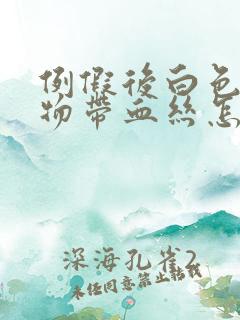 例假後白色
物帶血絲怎
深海孔雀2
未任同意禁止轉載